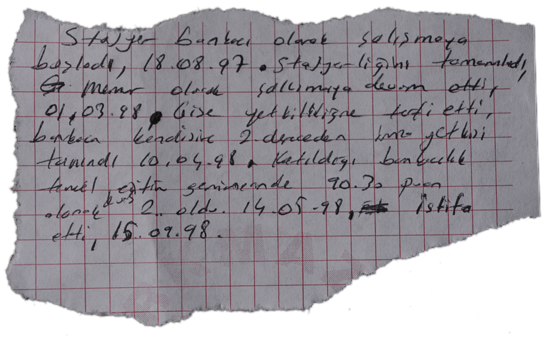 Stajyer bankacı olarak çalışmaya
başladı, 18.08.97. Stajyerliğini tamamladı,
memur olarak çalışmaya devam etti,
01.03.98. Gişe yetkililiğine terfi etti,
bankaca kendisine 2. dereceden imza yetkisi
tanındı 10.04.98. Katıldığı bankacılık
temel eğitim seminerinde 90.30 puan
alarak 2. oldu. 14.05.98, istifa
etti, 15.09.98.